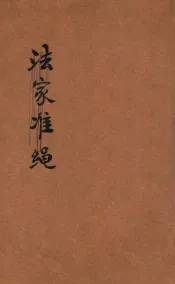 法家准绳